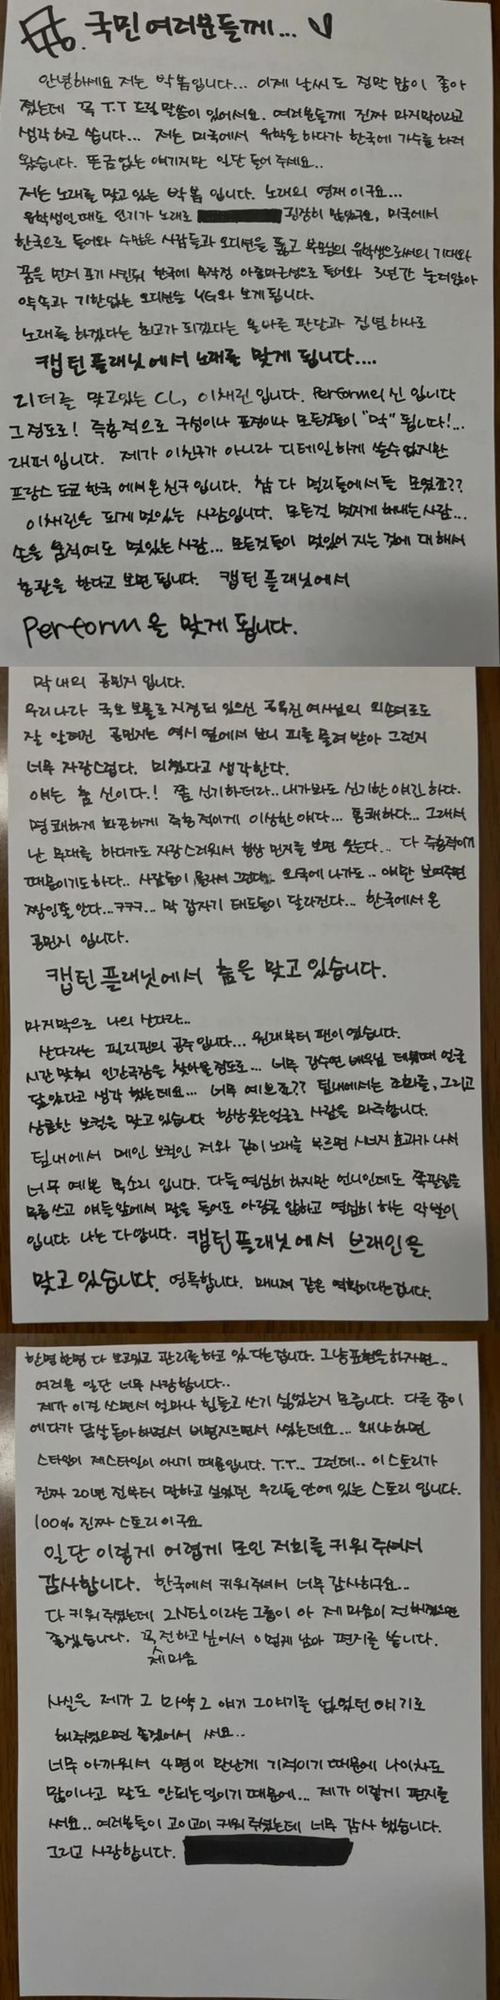 국민여러분들께...
안녕하세요 저는 박봄입니다... 이제 날씨도 정말 많이 좋아
졌는데 꼭 T.T 드릴 말씀이 있어서요. 여러분들께 진짜 마지막이라고
생각하고 씁니다... 저는 미국에서 유학을 하다가 한국에 가수를 하러
왔습니다. 뜬금없는 얘기지만 일단 들어 주세요..
저는 노래를 맞고있는 박봄 입니다. 노래의 영재이구요...
유학생인 때도 인기가 노래로 굉장히 많았구요, 미국에서
한국으로 들어와 수많은 사람들과 오디션을 뚫고 부모님의 유학생으로써의 기대와
꿈을 먼저 포기 시킨뒤 한국에 무작정 들어와 3년간 눌러앉아
약속과 기한없는 오디션을 YG와 보게됩니다.
노래를 하겠다는 최고가 되겠다는 올바른 판단과 집념 하나로
캡틴플래닛에서 노래를 맞게 됩니다....
리더를 맞고있는 CL, 이채린입니다. Perform의 신 입니다
그정도로! 즉흥적으로 구성이나 표정이나 모든것들이 "막" 됩니다!...
래퍼입니다. 제가 이친구가 아니라 디테일하게 쓸수없지만
프랑스 도쿄 한국 에서온 친구입니다. 참 다 멀리들에서들 모였죠??
이채린은 되게 멋있는 사람입니다. 모든걸 멋지게 해내는 사람...
손을 움직여도 멋있는 사람... 모든것들이 멋있어 지는 것에 대해서
총관을 한다고 보면 됩니다. 캡틴 플래닛에서
Perform을 맞게 됩니다.
막내의 공민지 입니다.
우리나라 국보 보물로 지정되 있으신 공옥진 여사님의 외손녀로도
잘 알려진 공민지는 역시 옆에서 보니 피를 물려 받아 그런지
너무 자랑스럽다. 미쳤다고 생각한다.
얘는 춤 신이다.! 쫌 신기하더라.. 내가봐도 신기한 얘긴 하다.
명쾌하게 화끈하게 즉흥적이게 이상한 얘다... 통쾌하다... 그래서
난 무대를 하다가도 자랑스러워서 항상 민지를 보면 웃는다... 다 즉흥적이기
때문이기도 하다.. 사람들이 몰라서 그런데.. 외국에 나가도.. 얘만 보여주면
짱인줄 안다...ㅋㅋㅋ... 막 갑자기 태도들이 달라진다... 한국에서 온
공민지 입니다.
캡틴플래닛에서 춤을 맞고 있습니다.
마지막으로 나의 산다라...
산다라는 필리핀의 공주입니다... 원래부터 팬이였습니다.
시간 맞춰 인간극장을 찾아올정도로... 너무 강수연 배우님 데뷔때 얼굴
닮았다고 생각 했는데요... 너무 예쁘죠?? 팀내에서는 조화를, 그리고
상큼한 보컬을 맞고 있습니다 항상웃는얼굴로 사람을 마주합니다.
팀내에서 메인 보컬인 저와 같이 노래를 부르면 시너지 효과가 나서
너무 예쁜 목소리 입니다. 다들 열심히 하지만 언니인데도 쪽팔림을
무릅쓰고 얘들앞에서 말을 들어도 아랑곳 않하고 열심히 하는 악발이
입니다. 나는 다 압니다. 캡틴플래닛에서 브레인을
맞고 있습니다. 영특합니다. 매니져 같은 역할이라는겁니다.
한명한명 다 보고있고 관리를하고 있다는겁니다. 그냥 표현을 하자면..
여러분 일단 너무 사랑합니다..
제가 이걸 쓰면서 얼마나 힘들고 쓰기 싫었는지 모릅니다. 다른 종이
에다가 닭살돋아하면서 비명지르면서 썼는데요... 왜냐하면
스타일이 제스타일이 아니기 때문입니다. T.T... 그런데.. 이스토리가
진짜 20년 전부터 말하고 싶었던 우리들 안에 있는 스토리 입니다.
100% 진짜 스토리 이구요
일단 이렇게 어렵게 모인 저희를 키워 주셔서
감사합니다. 한국에서 키워주셔서 너무 감사하구요...
다 키워주셨는데 2NE1이라는그룹이 아 제 마음이 전해졌으면
좋겠습니다. 꼭 전하고 싶어서 이렇게 남아 편지를 씁니다.
제마음
사실은 제가 그 마약 그 얘기 그얘기를 없었던 얘기로
해주셨으면 좋겠어서 써요...
너무 아까워서 4명이 만난게 기적이기 때문에 나이차도
많이나고 말도 안되는 일이기 때문에... 제가 이렇게 편지를
써요.. 여러분들이 고이고이 키워주셨는데 너무 감사 했습니다.
그리고 사랑합니다.